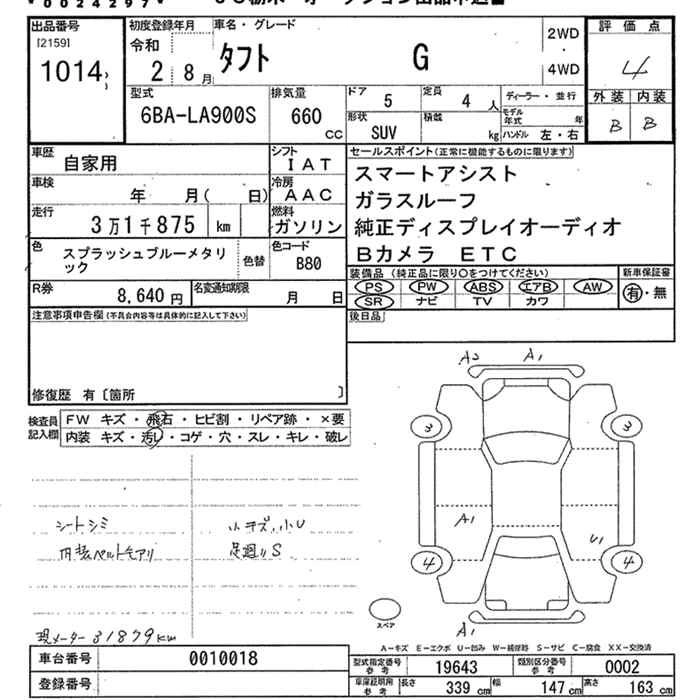 * 0 0 2 4 2 9 7 *
出品番号
[2159]
1014
初度登録年月
令和
2 8月
車名・グレード
タフト G
2WD
4WD
評価点
4
外装 内装
B B
型式
6BA-LA900S
排気量
660
CC
ドア 5
定員 4人
形状 SUV
積載 kg
ディーラー・並行
モデル年式 年
ハンドル 左・右
車歴 自家用
シフト IAT
車検 年 月( 日)
冷房 AAC
走行 3万1千875 km
燃料 ガソリン
色 スプラッシュブルーメタリック
色替
色コード B80
R券 8,640円
名変通知期限 月 日
セールスポイント(正常に機能するものに限ります)
スマートアシスト
ガラスルーフ
純正ディスプレイオーディオ
Bカメラ ETC
装備品(純正品に限り○をつけてください)
PS PW ABS エアB AW
SR ナビ TV カワ
新車保証書
有・無
注意事項申告欄(不具合内容等は具体的に記入して下さい)
後日品
修復歴 有〔箇所 〕
検査員記入欄
FW キズ・飛石・ヒビ割・リペア跡・×要
内装 キズ・汚レ・コゲ・穴・スレ・キレ・破レ
A2 A1
3 3
A1 U1
4 4
A1
シートシミ
小キズ,小U
足廻りS
現メーター31879km
スペア
A-キズ E-エクボ U-凹み W-補修跡 S-サビ C-腐食 XX-交換済
車台番号 0010018
登録番号
型式指定番号 参考 19643
類別区分番号 参考 0002
車庫証明用 参考 長さ 339cm 幅 147cm 高さ 163cm